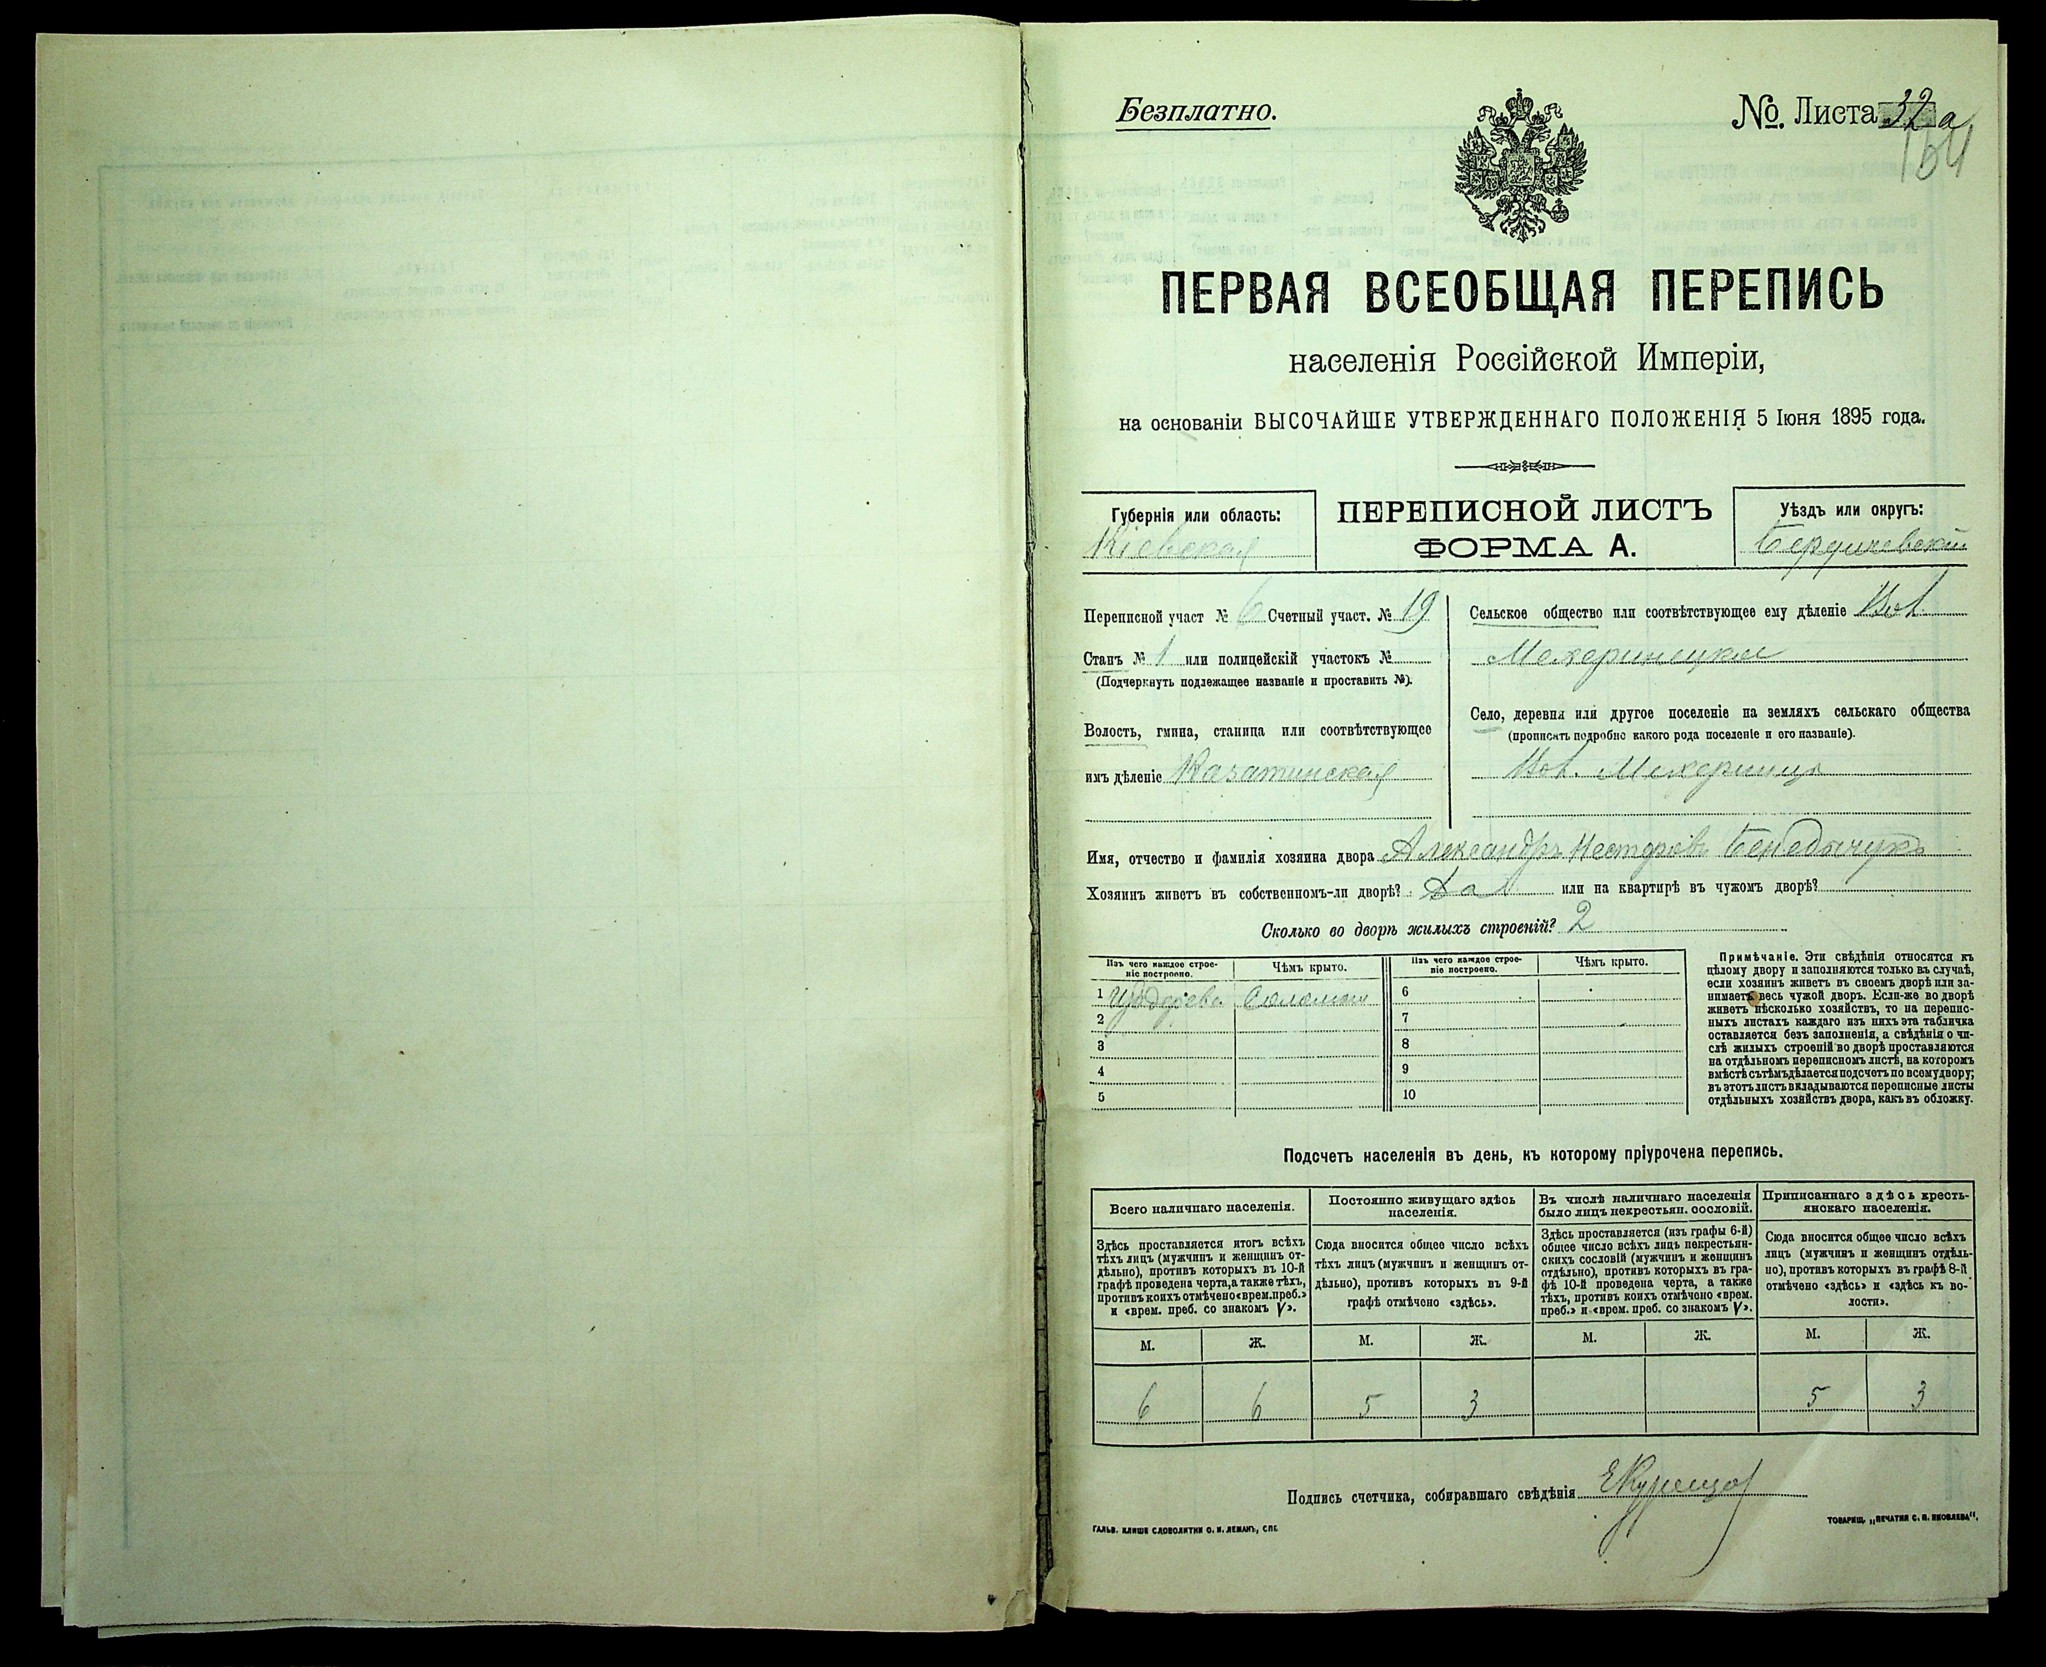 Безплатно.
№. Листа 32 а
164
ПЕРВАЯ ВСЕОБЩАЯ ПЕРЕПИСЬ
населенія Россійской Имперіи,
на основаніи ВЫСОЧАЙШЕ УТВЕРЖДЕННАГО ПОЛОЖЕНІЯ 5 Іюня 1895 года.
Губернія или область:
Кіевская
ПЕРЕПИСНОЙ ЛИСТЪ
ФОРМА А.
Уѣздъ или округъ:
Бердичевскій
Переписной участ № 6 Счетный участ. № 19
Станъ № 1 или полицейскій участокъ №
(Подчеркнуть подлежащее названіе и проставить №).
Волость, гмина, станица или соотвѣтствующее
имъ дѣленіе Казатинская
Сельское общество или соотвѣтствующее ему дѣленіе
Село, деревня или другое поселеніе на земляхъ сельскаго общества
(прописать подробно какого рода поселеніе и его названіе).
Имя, отчество и фамилія хозяина двора Александръ Несторовъ Бенедычукъ
Хозяинъ живетъ въ собственномъ-ли дворѣ? Да или на квартирѣ въ чужомъ дворѣ?
Сколько во дворѣ жилыхъ строеній? 2
Изъ чего каждое строе-
ніе построено.
Чѣмъ крыто.
Изъ чего каждое строе-
ніе построено.
Чѣмъ крыто.
1 Издерева Соломой 6
2 7
3 8
4 9
5 10
Примѣчаніе. Эти свѣдѣнія относятся къ
цѣлому двору и заполняются только въ случаѣ,
если хозяинъ живетъ въ своемъ дворѣ или за-
нимаетъ весь чужой дворъ. Если-же во дворѣ
живетъ нѣсколько хозяйствъ, то на перепис-
ныхъ листахъ каждаго изъ нихъ эта табличка
оставляется безъ заполненія, а свѣдѣнія о чи-
слѣ жилыхъ строеній во дворѣ проставляются
на отдѣльномъ переписномъ листѣ, на которомъ
вмѣстѣ съ тѣмъ дѣлается подсчетъ по всему двору;
въ этотъ листъ вкладываются переписные листы
отдѣльныхъ хозяйствъ двора, какъ въ обложку.
Подсчетъ населенія въ день, къ которому пріурочена перепись.
Всего наличнаго населенія.
Здѣсь проставляется итогъ всѣхъ
тѣхъ лицъ (мужчинъ и женщинъ от-
дѣльно), противъ которыхъ въ 10-й
графѣ проведена черта, а также тѣхъ,
противъ коихъ отмѣчено «врем. преб.»
и «врем. преб. со знакомъ V».
Постоянно живущаго здѣсь
населенія.
Сюда вносится общее число всѣхъ
тѣхъ лицъ (мужчинъ и женщинъ от-
дѣльно), противъ которыхъ въ 9-й
графѣ отмѣчено «здѣсь».
Въ числѣ наличнаго населенія
было лицъ некрестьян. сословій.
Здѣсь проставляется (изъ графы 6-й)
общее число всѣхъ лицъ некрестьян-
скихъ сословій (мужчинъ и женщинъ
отдѣльно), противъ которыхъ въ гра-
фѣ 10-й проведена черта, а также
тѣхъ, противъ коихъ отмѣчено «врем.
преб.» и «врем. преб. со знакомъ V».
Приписаннаго здѣсь кресть-
янскаго населенія.
Сюда вносится общее число всѣхъ
лицъ (мужчинъ и женщинъ отдѣль-
но), противъ которыхъ въ графѣ 8-й
отмѣчено «здѣсь» и «здѣсь къ во-
лости».
М. Ж. М. Ж. М. Ж. М. Ж.
6 6 5 3 5 3
Подпись счетчика, собиравшаго свѣдѣнія
ГАЛЬВ. КЛИШЕ СЛОВОЛИТНИ О. И. ЛЕМАНЪ, СПБ.
ТОВАРИЩ. „ПЕЧАТНЯ С. П. ЯКОВЛЕВА".